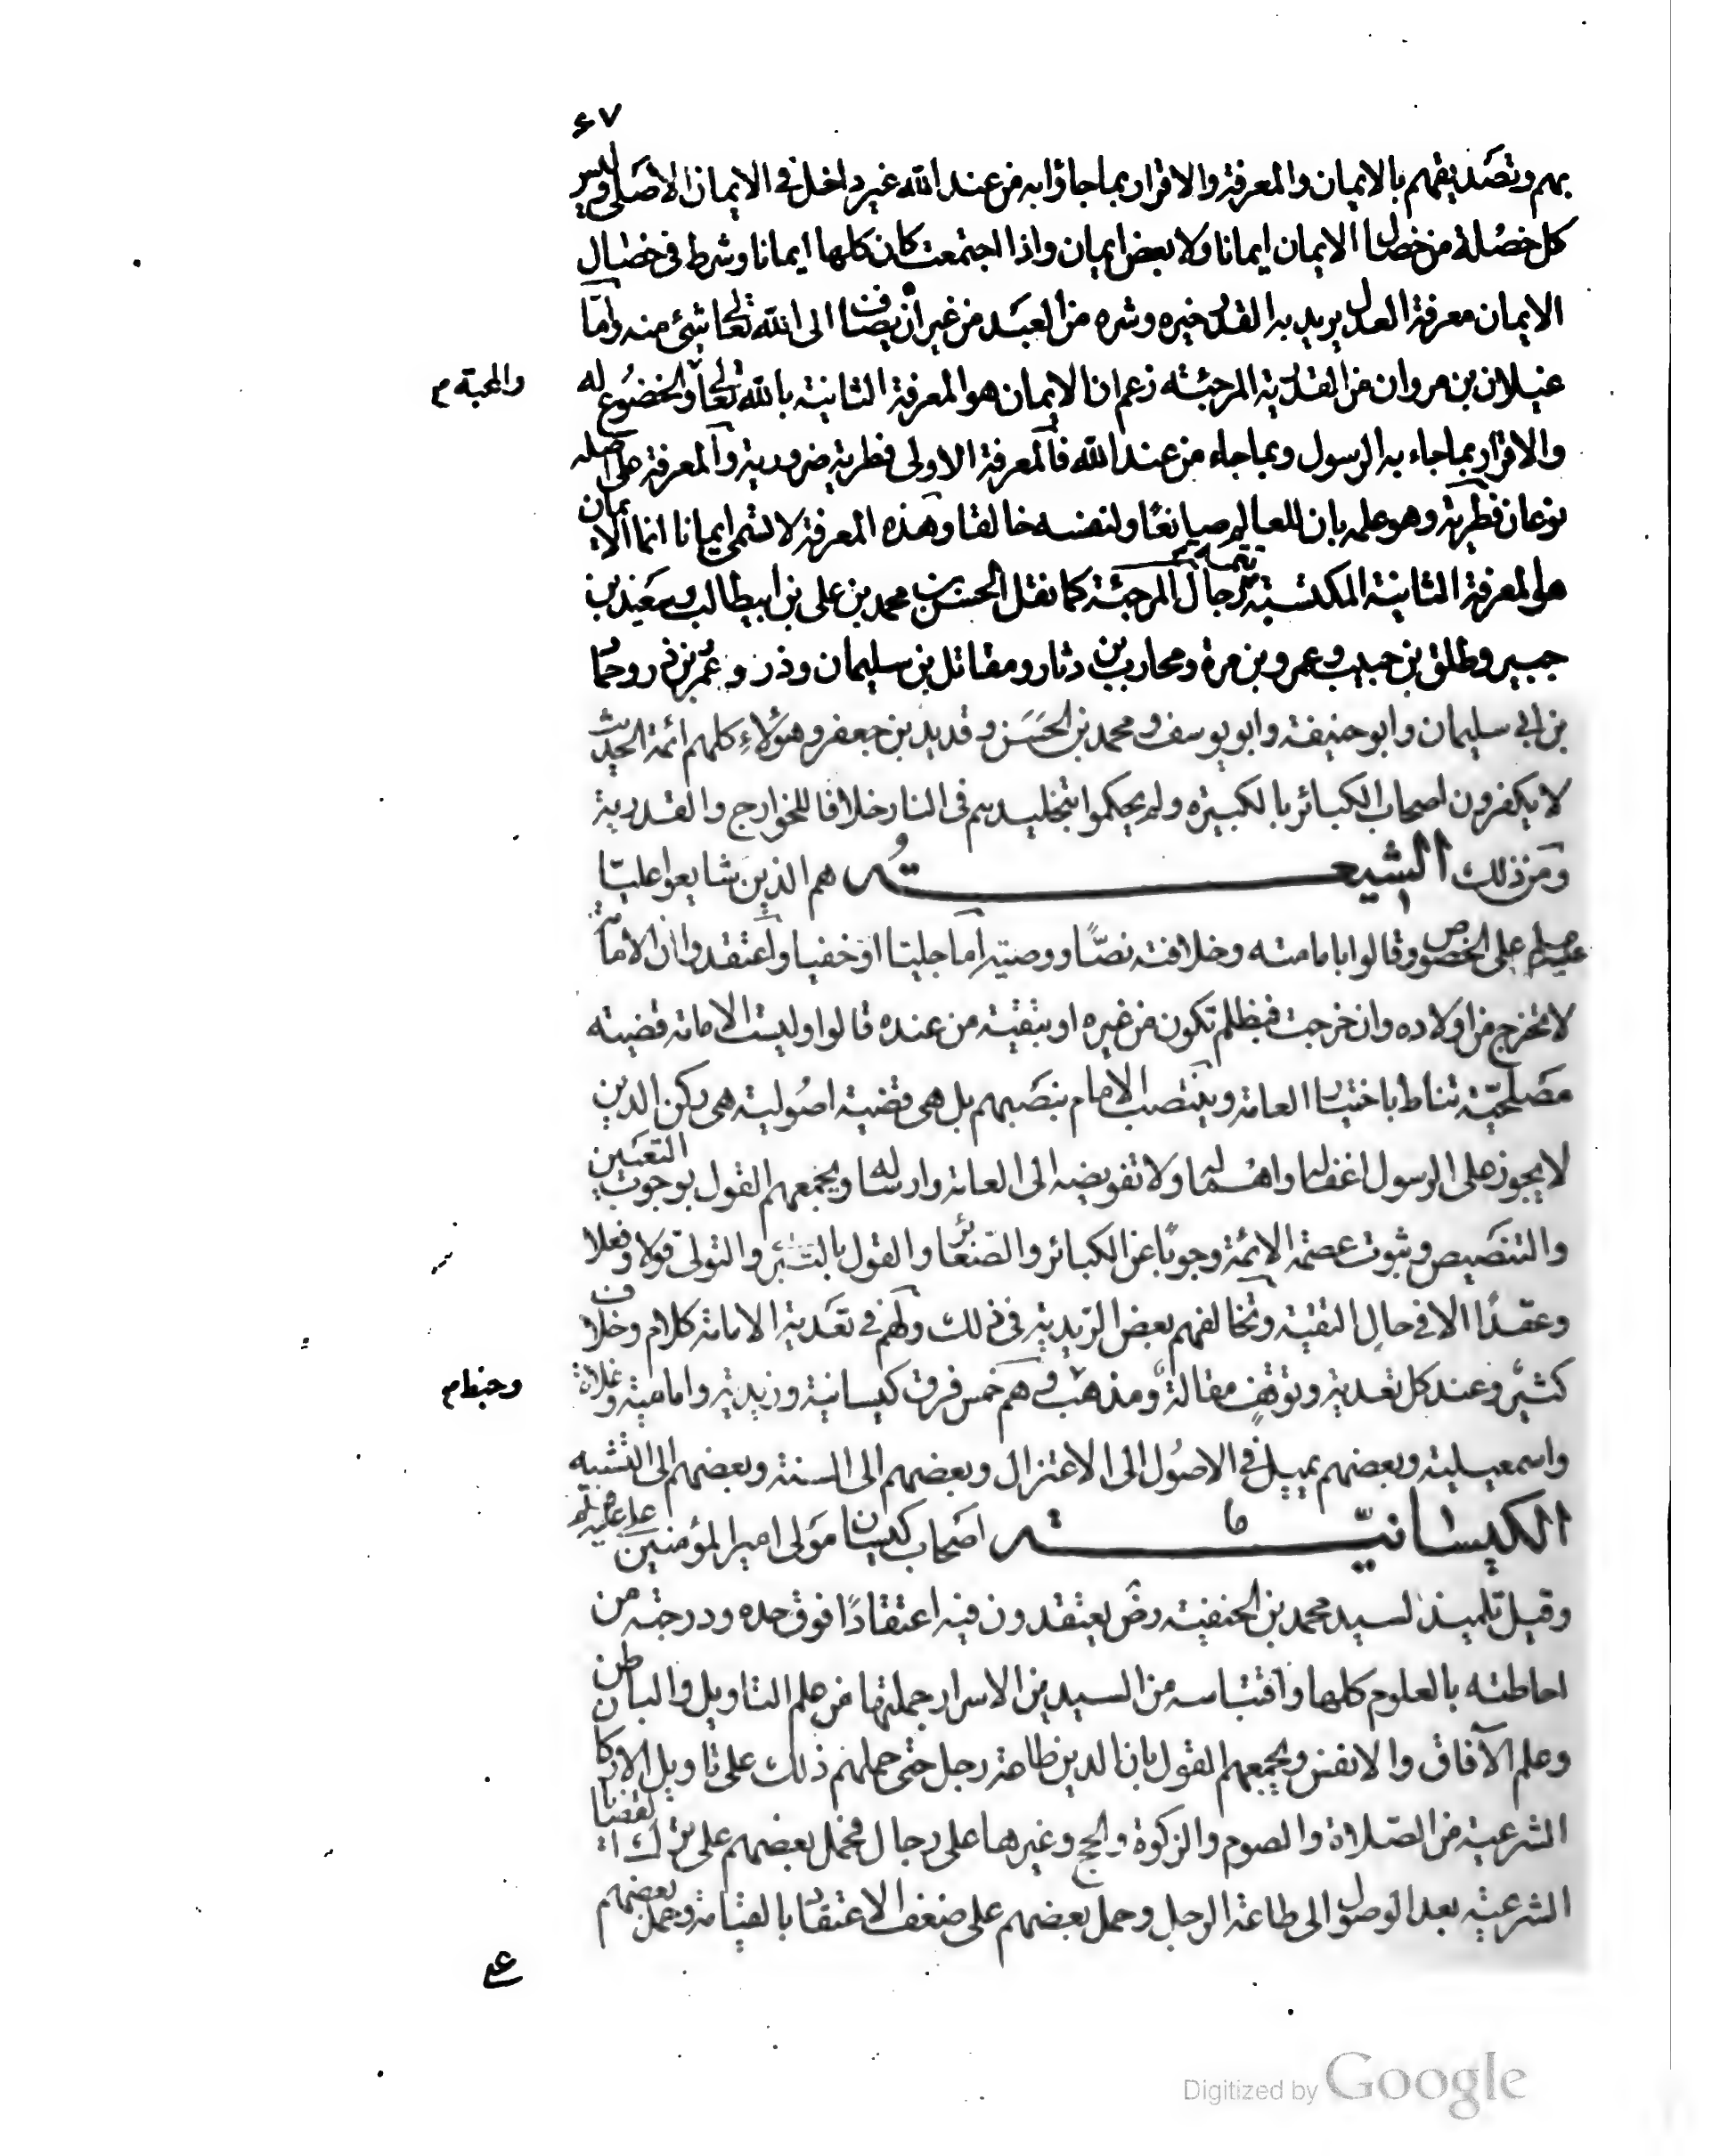 ٤٧
بهم وتصديقهم بالايمان والمعرفة والاقرار بما جاؤا به من عند الله غير داخل فى الايمان الاصلى وليس
كل خصلة من خصال الايمان ايمانا ولا بعض ايمان واذا اجتمعت كان كلها ايمانا وشرط فى خصال
الايمان معرفة العدل يريد به القدر خيره وشره من العبد من غير ان يضاف الى الله تعالى شئ منه واما
غيلان بن مروان من القدرية المرجئة زعم ان الايمان هو المعرفة الثانية بالله تعالى والخضوع له
والمحبة م
والاقرار بما جاء به الرسول وبما جاء من عند الله فالمعرفة الاولى فطرية ضرورية والمعرفة على اصله
نوعان فطرية وهو علمه بان للعالم صانعًا ولنفسه خالقا وهذه المعرفة لا تسمى ايمانا انما الايمان
هو المعرفة الثانية المكتسبة تتمة رجال المرجئة كما نقل الحسن بن محمد بن على بن ابيطالب وسعيد بن
جبير وطلق بن حبيب وعمرو بن مرة ومحارب بن دثار ومقاتل بن سليمان وذر وعمر بن ذر وحماد
بن ابى سليمان وابو حنيفة وابو يوسف ومحمد بن الحسن وقديد بن جعفر وهؤلاء كلهم ائمة الحديث
لا يكفرون اصحاب الكبائر بالكبيرة ولم يحكموا بتخليدهم فى النار خلافا للخوارج والقدرية
ومن ذلك الشيعة هم الذين شايعوا عليّا
عليه السلم على الخصوص وقالوا بامامته وخلافته نصًّا ووصية اما جليا او خفيا واعتقدوا ان الامامة
لا تخرج من اولاده وان خرجت فبظلم تكون من غيره او بتقية من عنده قالوا وليست الامامة قضية
مصلحية تناط باختيار العامة وينتصب الامام بنصبهم بل هى قضية اصولية هى ركن الدين
لا يجوز على الرسول اغفاله واهماله ولا تفويضه الى العامة وارساله ويجمعهم القول بوجوب التعيين
والتنصيص وثبوت عصمة الائمة وجوبًا عن الكبائر والصغائر والقول بالتبرى والتولى قولا وفعلا
وعقدًا الا فى حال التقية وتخالفهم بعض الزيدية فى ذلك ولهم فى تعدية الامامة كلام وخلاف
كثير وعند كل تعدية وتوقف مقالة ومذهب هم خمس فرق كيسانية وزيدية وامامية وغلاة
وخبط م
واسمعيلية وبعضهم يميل فى الاصول الى الاعتزال وبعضهم الى السنة وبعضهم الى التشبيه
الكيسانيّة اصحاب كيسان مولى امير المؤمنين على عليه السلم
وقيل تلميذ لسيد محمد بن الحنفية رض يعتقدون فيه اعتقادًا فوق حده ودرجته من
احاطته بالعلوم كلها واقتباسه من السيدين الاسرار جملتها من علم التاويل والباطن
وعلم الآفاق والانفس ويجمعهم القول بان الدين طاعة رجل حتى حملهم ذلك على تاويل الاركان
الشرعية من الصلاة والصوم والزكوة والحج وغيرها على رجال فحمل بعضهم على ترك القضايا
الشرعية بعد الوصول الى طاعة الرجل وحمل بعضهم على ضعف الاعتقاد بالقيامة وحمل بعضهم
على
Digitized by Google